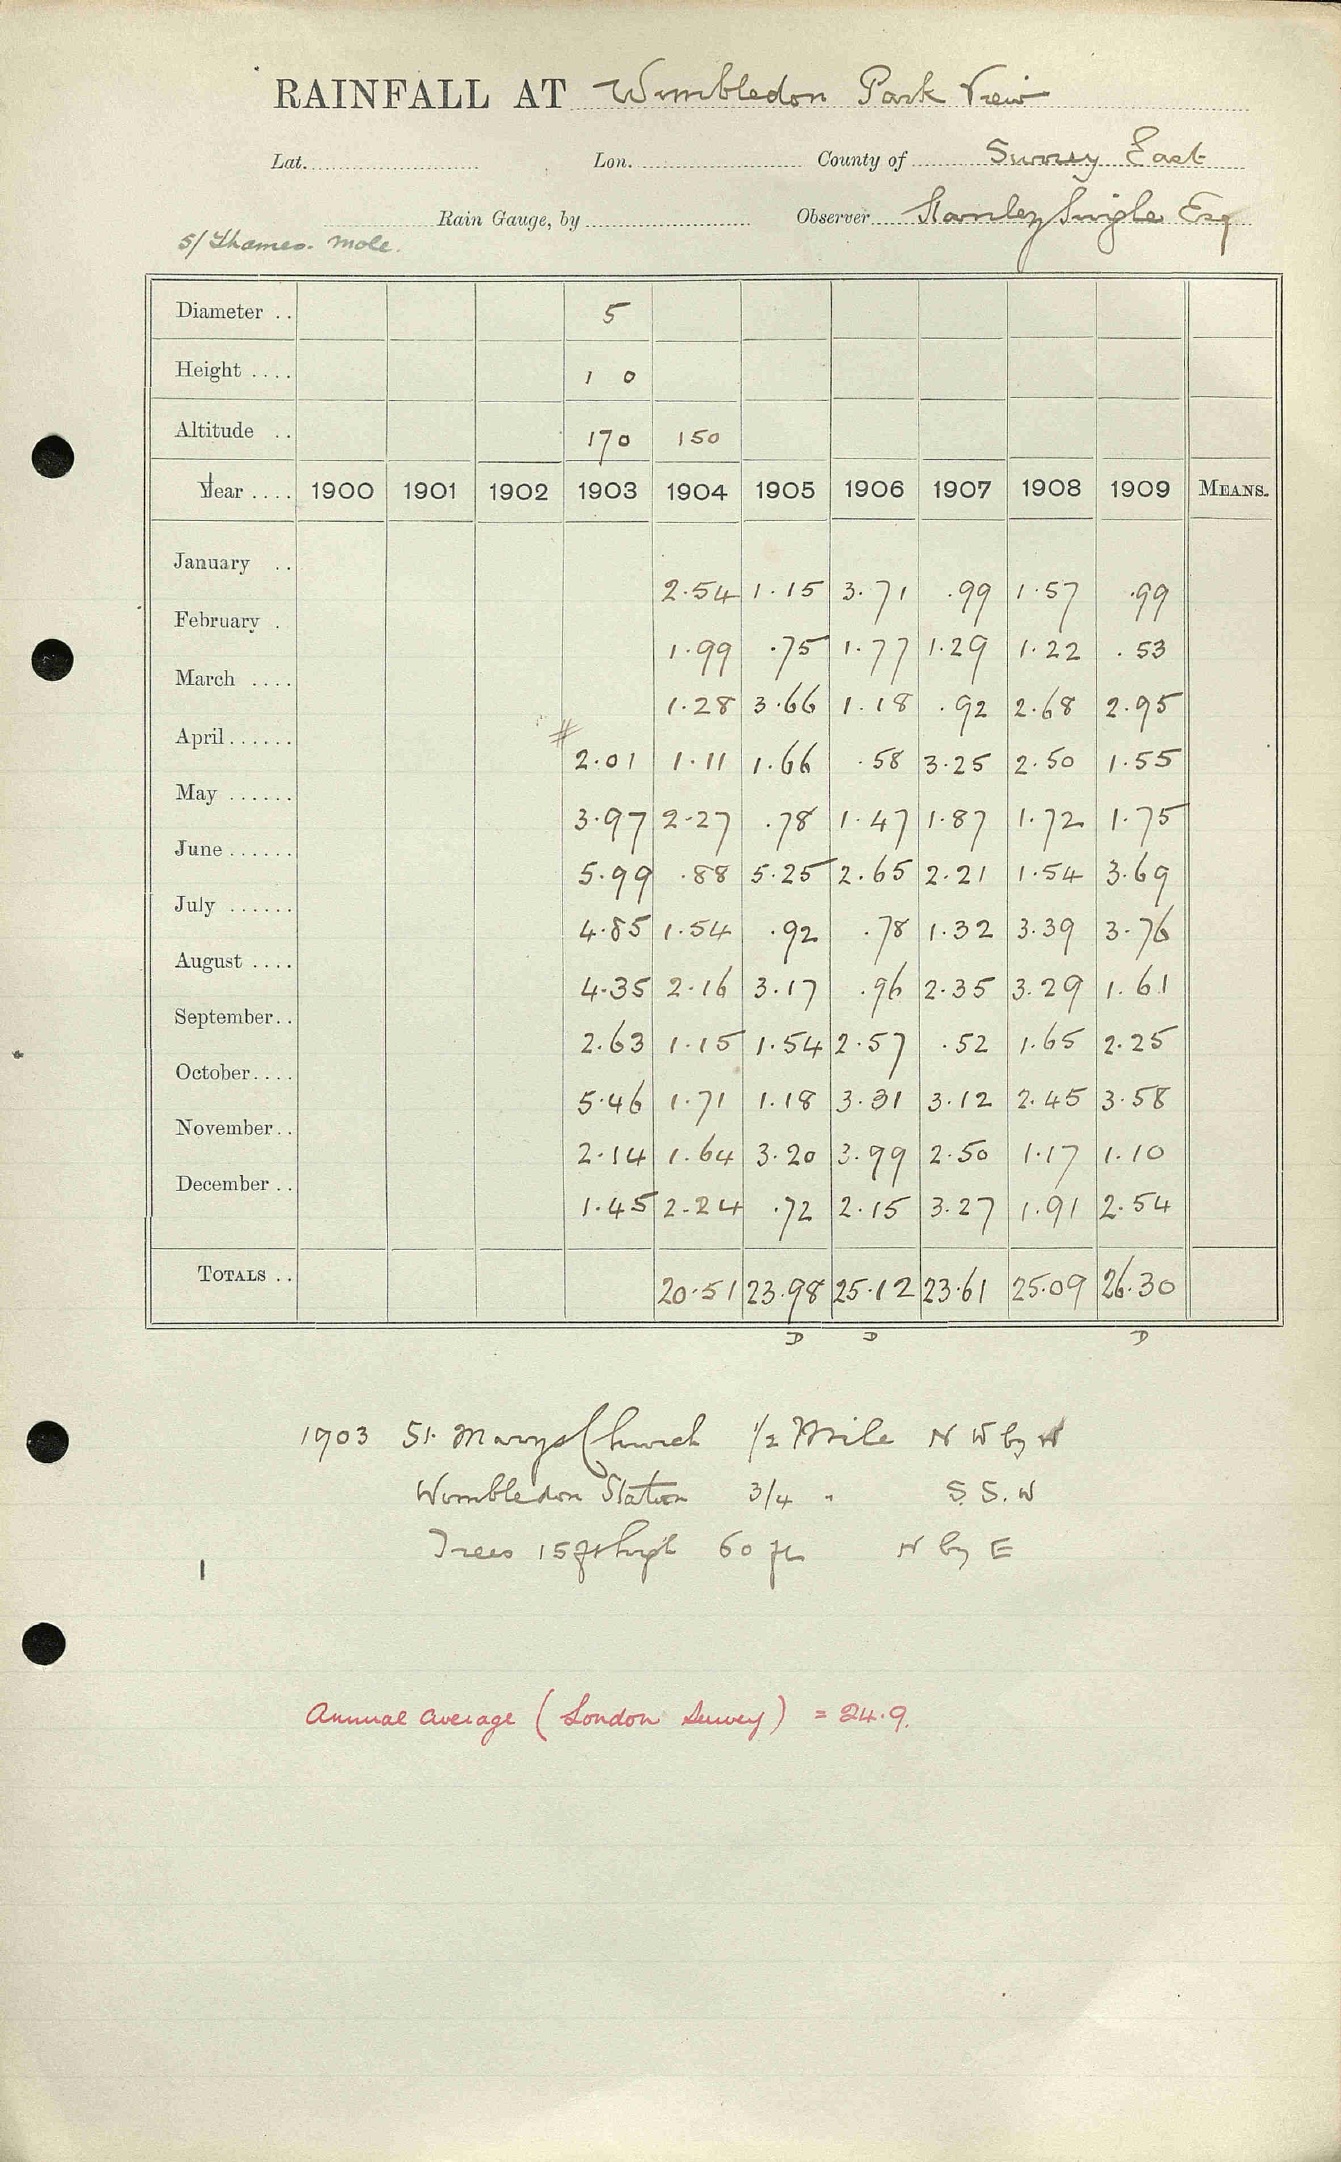 RAINFALL AT Wimbledon Park View
Lat. Lon. County of Surrey East
Rain Gauge, by Observer Stanley Single Esq
5/ Thames. Mole.
Diameter .. 5
Height .... 1 0
Altitude .. 170 150
Year .... 1900 1901 1902 1903 1904 1905 1906 1907 1908 1909 MEANS.
January .. 2.54 1.15 3.71 .99 1.57 .99
February . 1.99 .75 1.77 1.29 1.22 .53
March .... 1.28 3.66 1.18 .92 2.68 2.95
April...... # 2.01 1.11 1.66 .58 3.25 2.50 1.55
May ...... 3.97 2.27 .78 1.47 1.87 1.72 1.75
June ...... 5.99 .88 5.25 2.65 2.21 1.54 3.69
July ...... 4.85 1.54 .92 .78 1.32 3.39 3.76
August .... 4.35 2.16 3.17 .96 2.35 3.29 1.61
September.. 2.63 1.15 1.54 2.57 .52 1.65 2.25
October.... 5.46 1.71 1.18 3.31 3.12 2.45 3.58
November.. 2.14 1.64 3.20 3.99 2.50 1.17 1.10
December .. 1.45 2.24 .72 2.15 3.27 1.91 2.54
TOTALS .. 20.51 23.98 25.12 23.61 25.09 26.30
D D D
1903 St. Marys Church 1/2 Mile N W by N
Wimbledon Station 3/4 " S. S. W
Trees 15 ft high 60 ft N by E
Annual average (London Survey) = 24.9.